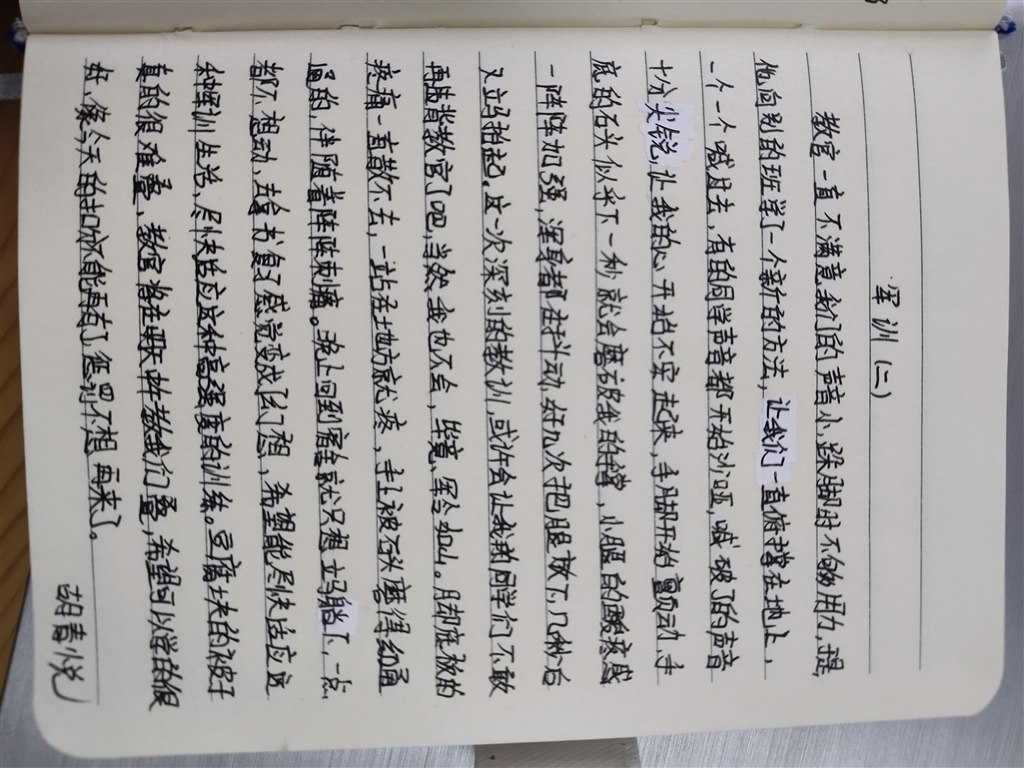 军训(二)
教官一直不满意我们的声音小,跺脚时不够用力,于是
他向别的班学了一个新的方法,让我们一直俯撑在地上,
一个一个喊过去,有的同学声音都开始沙哑,喊破了的声音
十分尖锐,让我的心开始不安起来,手脚开始颤动,手
底的石头似乎下一秒就会磨破我的手掌,小腿的酸疼感
一阵阵加强,浑身都在抖动,好几次把腿放下,几秒后
又立马抬起。这一次深刻的教训,或许会让我班同学们不敢
再违背教官了吧,当然,我也不会,毕竟,军令如山。脚底板的
疼痛一直散不去,一站在地方就疼,手上被石头磨得红通
通的,伴随着阵阵刺痛。晚上回到宿舍就只想立马躺下,一点
都不想动,去背书包了感觉变成了幻想,希望能尽快适应这
种军训生活,尽快适应这种高强度的训练。豆腐块的被子
真的很难叠,教官将在明天中午教我们叠,希望可以学的很
好,像今天的扣分不能再有了,惩罚不想再来了。
胡春悦